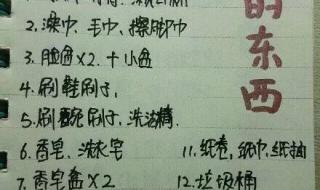 的东西
2.澡巾、毛巾、擦脚巾
3.脸盆x2.+小盆
4.刷鞋刷子,
5.刷碗刷子、洗洁精.
6.香皂、洗衣皂
7.香皂盒x2
11.纸卷,纸巾,纸抽
12.垃圾桶